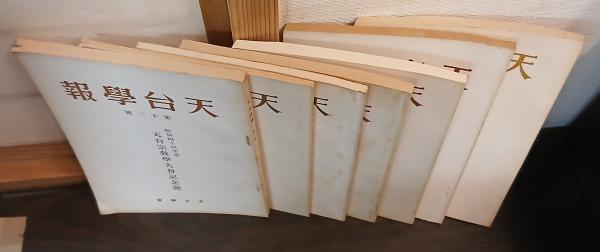 天台學報
第十二號
昭和四十四年度
天台宗教學大會記念號
天
天
天
天
天
天